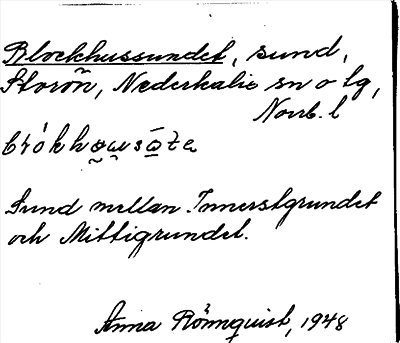 Blockhussundet, sund,
Storön, Nederkalix sn o tg,
Norrb. l
Sund mellan Innerstgrundet
och Mittigrundet.
Anna Rönnquist, 1948